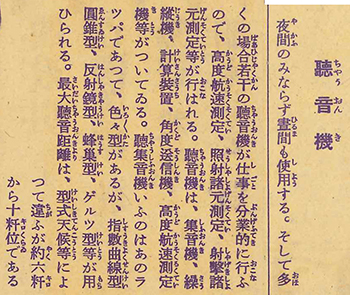 聽音機
夜間のみならず晝間も使用する。そして多
くの場合若干の聽音機が仕事を分業的に行ふ
ので、高度航速測定、照射諸元測定、射擊諸
元測定等が行はれる。聽音機は、集音機、操
縱機、計算裝置、角度送信機、高度航速測定
機等がついてゐる。聽集音機いふのはあのラ
ツパであつて、色々型があるが、指數曲線型、
圓錐型、反射鏡型、蜂巢型、ゲルツ型等が用
ひられる。最大聽音距離は、型式天候等によ
つて違ふが約六粁
から十粁位である